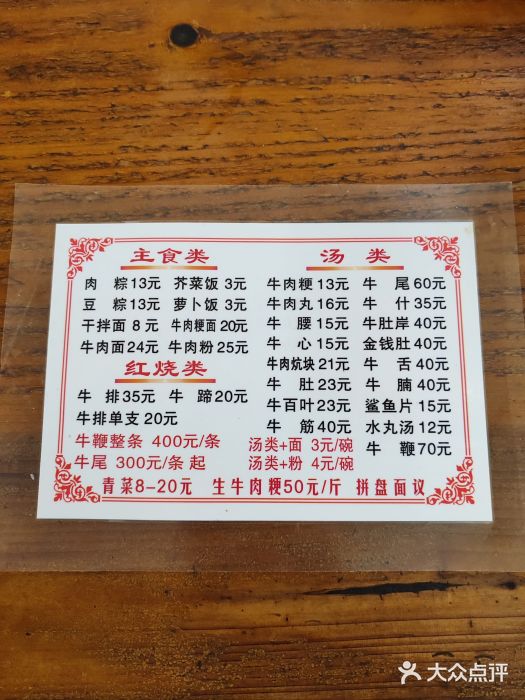 主食类
肉粽13元 芥菜饭 3元
豆粽13元 萝卜饭 3元
干拌面 8元 牛肉粳面 20元
牛肉面24元 牛肉粉 25元
红烧类
牛排35元 牛蹄20元
牛排单支 20元
牛鞭整条 400元/条
牛尾 300元/条 起
汤类
牛肉粳 13元 牛尾60元
牛肉丸 16元 牛什35元
牛腰 15元 牛肚岸 40元
牛心 15元 金钱肚 40元
牛肉炕块 21元 牛舌 40元
牛肚 23元 牛腩 40元
牛百叶 23元 鲨鱼片 15元
牛筋 40元 水丸汤 12元
汤类+面 3元/碗 牛鞭70元
汤类+粉 4元/碗
青菜8-20元 生牛肉粳50元/斤 拼盘面议
大众点评